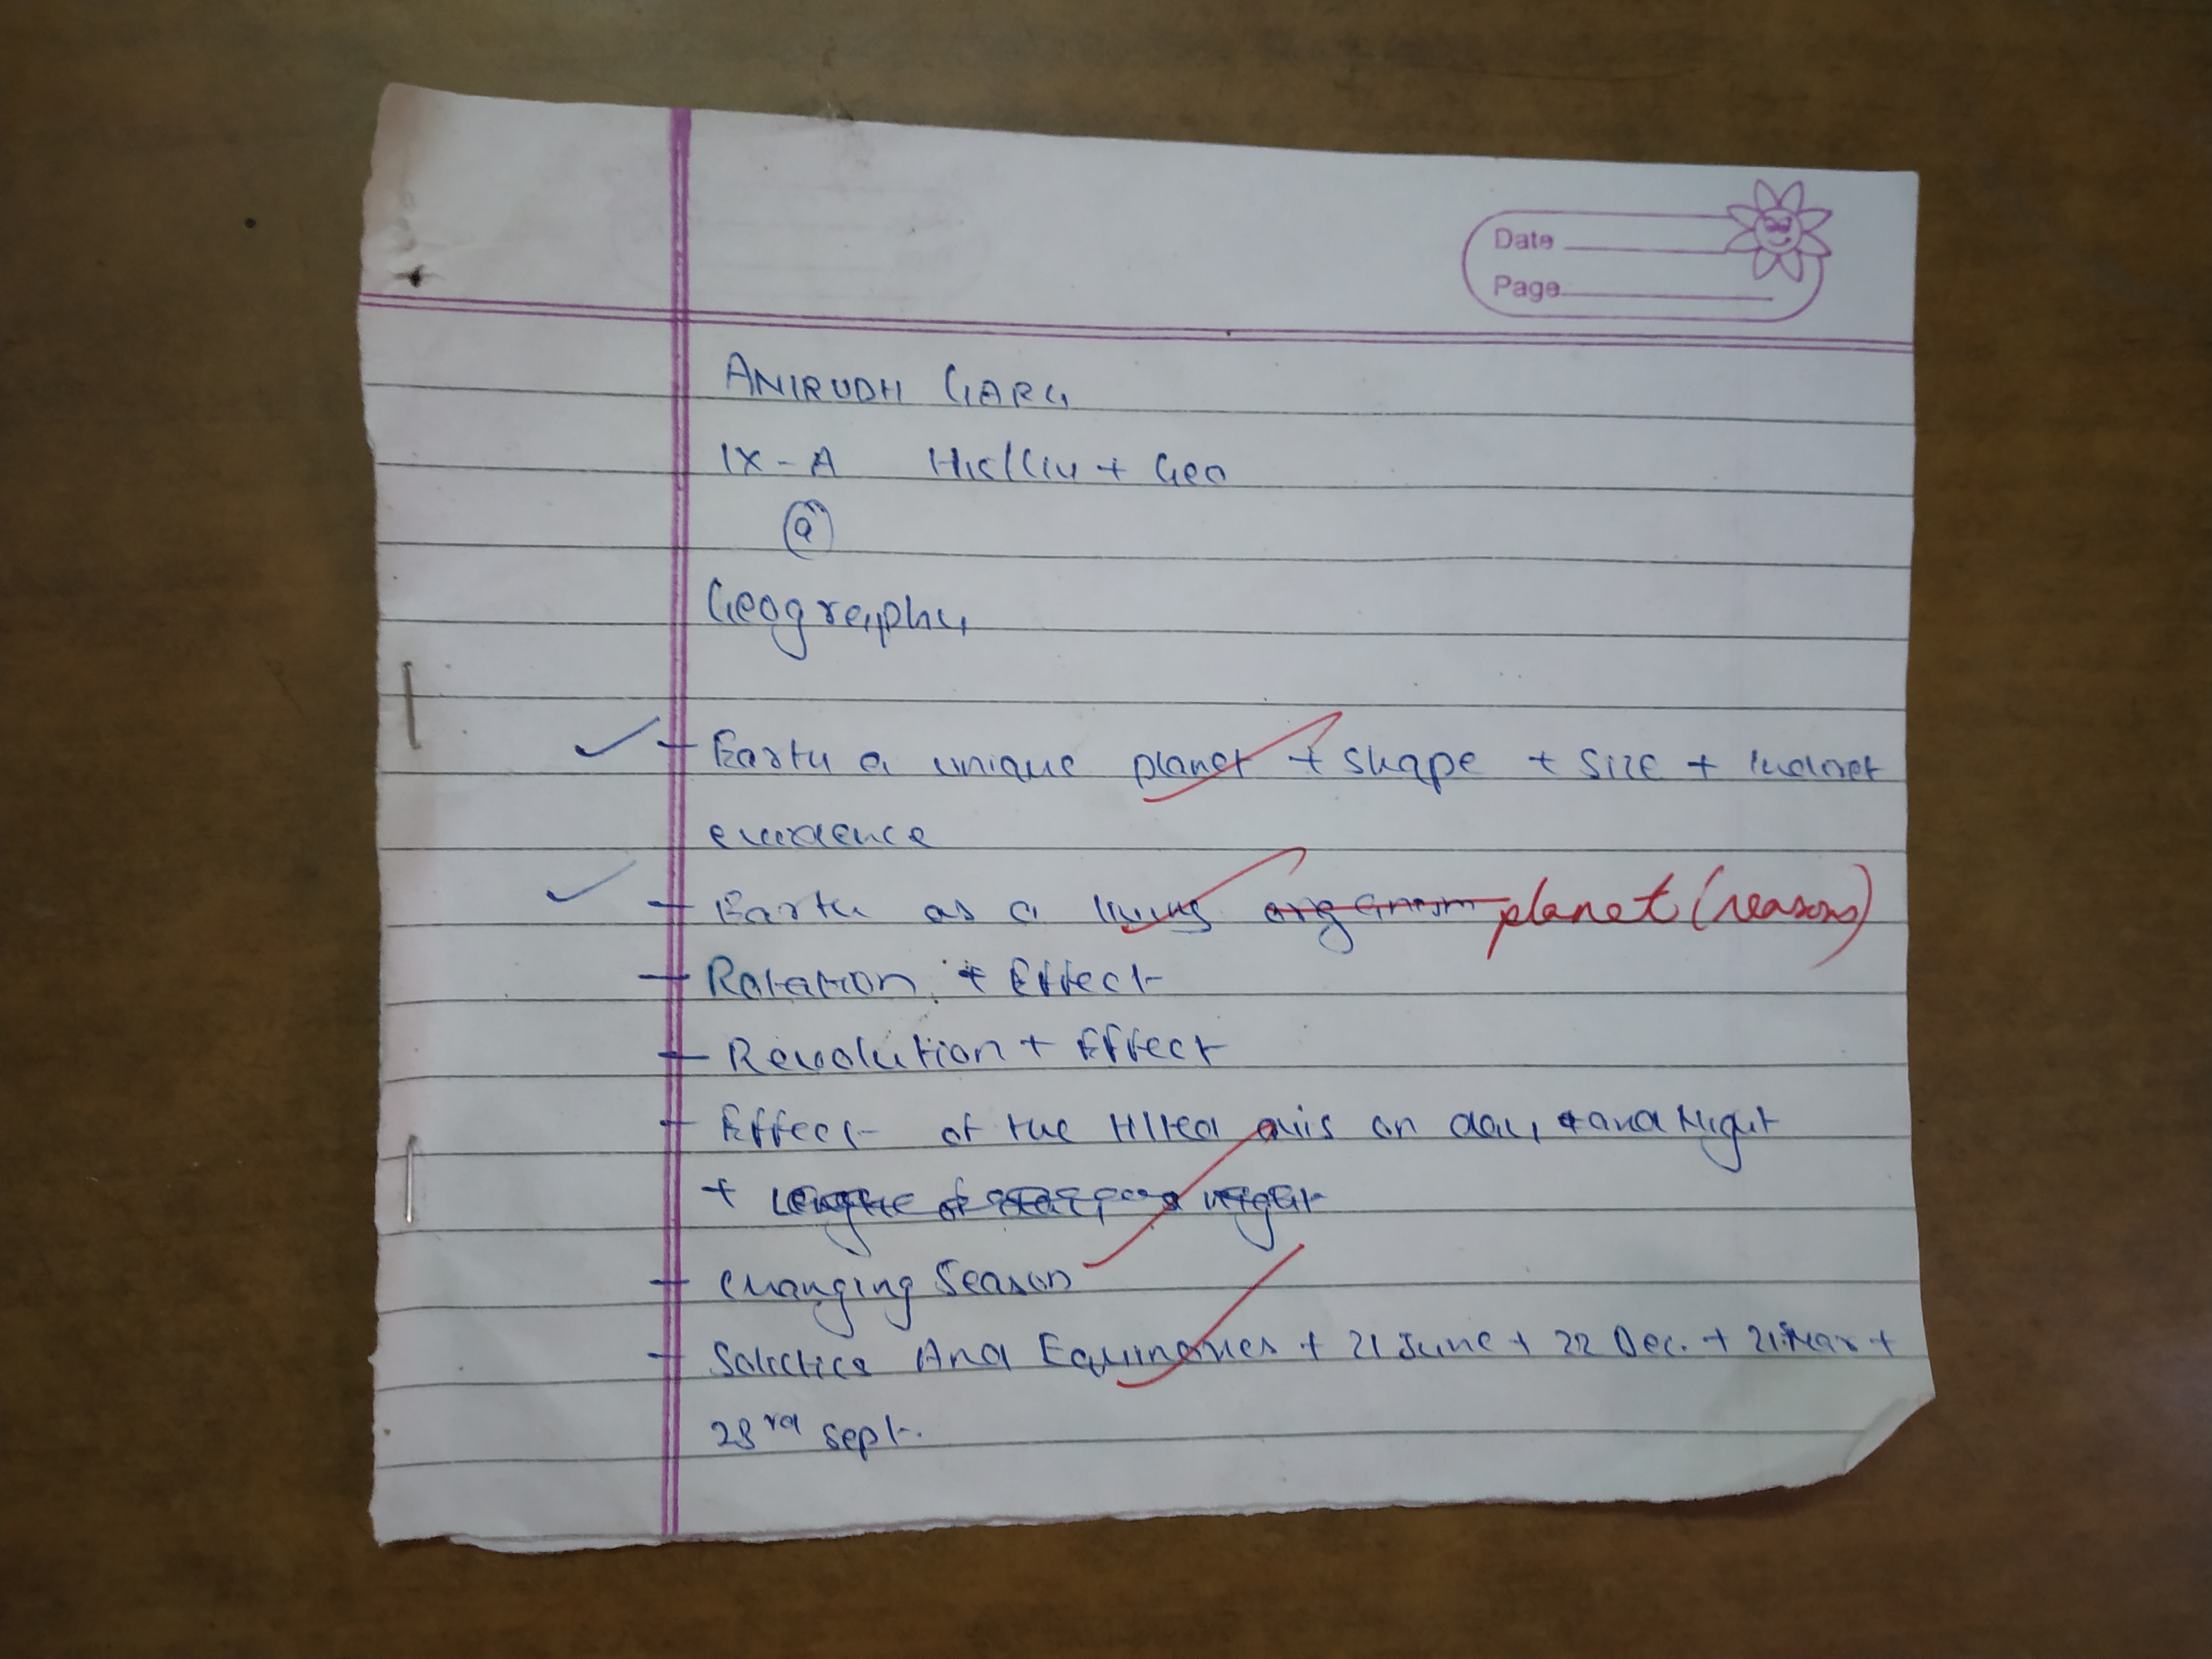 Date
Page
ANIRUDH GARG
IX - A His/Civ + Geo
@
Geography
- Earth a unique planet + shape + size + Indirect
evidence
- Earth as a living organism planet (reasons)
- Rotation + Effect
- Revolution + Effect
- Effect of the tilted axis on day and Night
+ Length of night
- Changing Season
- Solstice And Equinoxes + 21 June + 22 Dec. + 21 Mar +
23rd Sept.